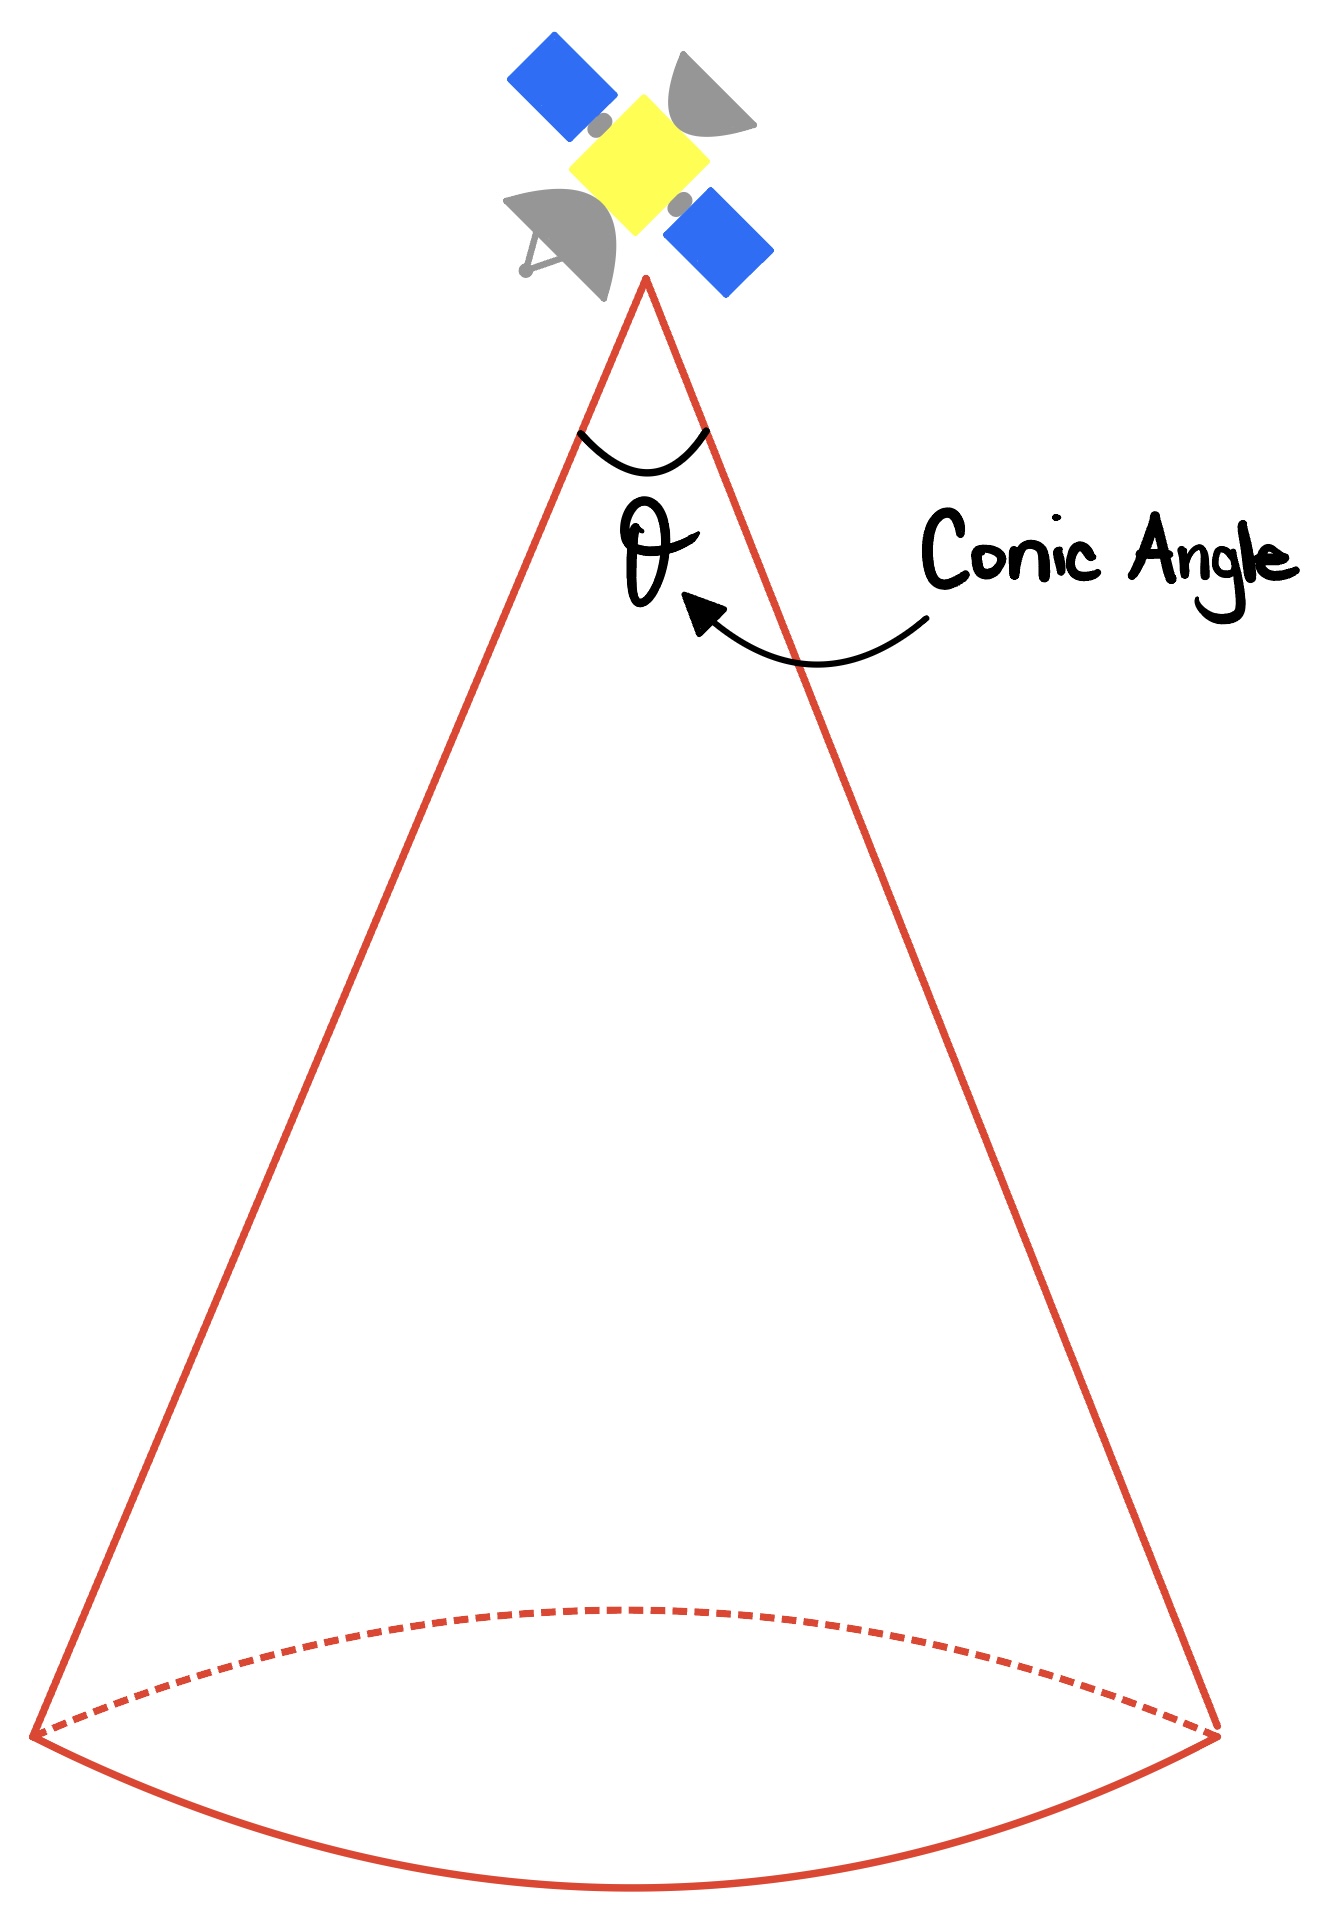 θ
Conic Angle